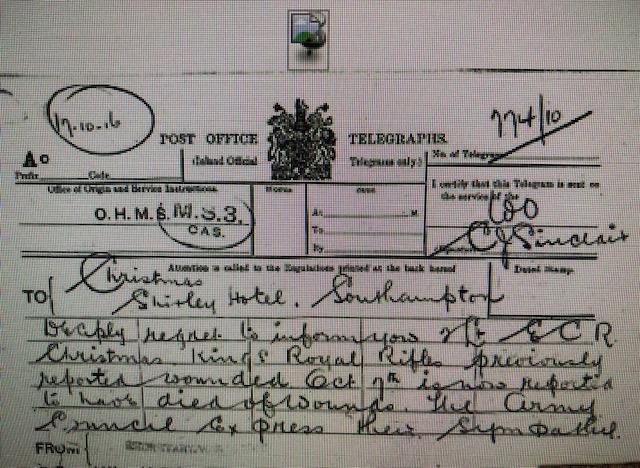 17.10.16
774/10
POST OFFICE TELEGRAPHS.
(Inland Official Telegrams only)
No. of Telegram
A o
Prefix Code
Office of Origin and Service Instructions.
WORDS
I certify that this Telegram is sent on
the service of the
O.H.M.S. M.S.3.
CAS.
At M.
To
By
WO
C J Sinclair
Attention is called to the Regulations printed at the back hereof
Dated Stamp.
TO { Christmas
Shirley Hotel. Southampton
Deeply regret to inform you Lt E C R
Christmas King's Royal Rifles previously
reported wounded Oct 7th is now reported
to have died of wounds. The Army
Council express their sympathy.
FROM {